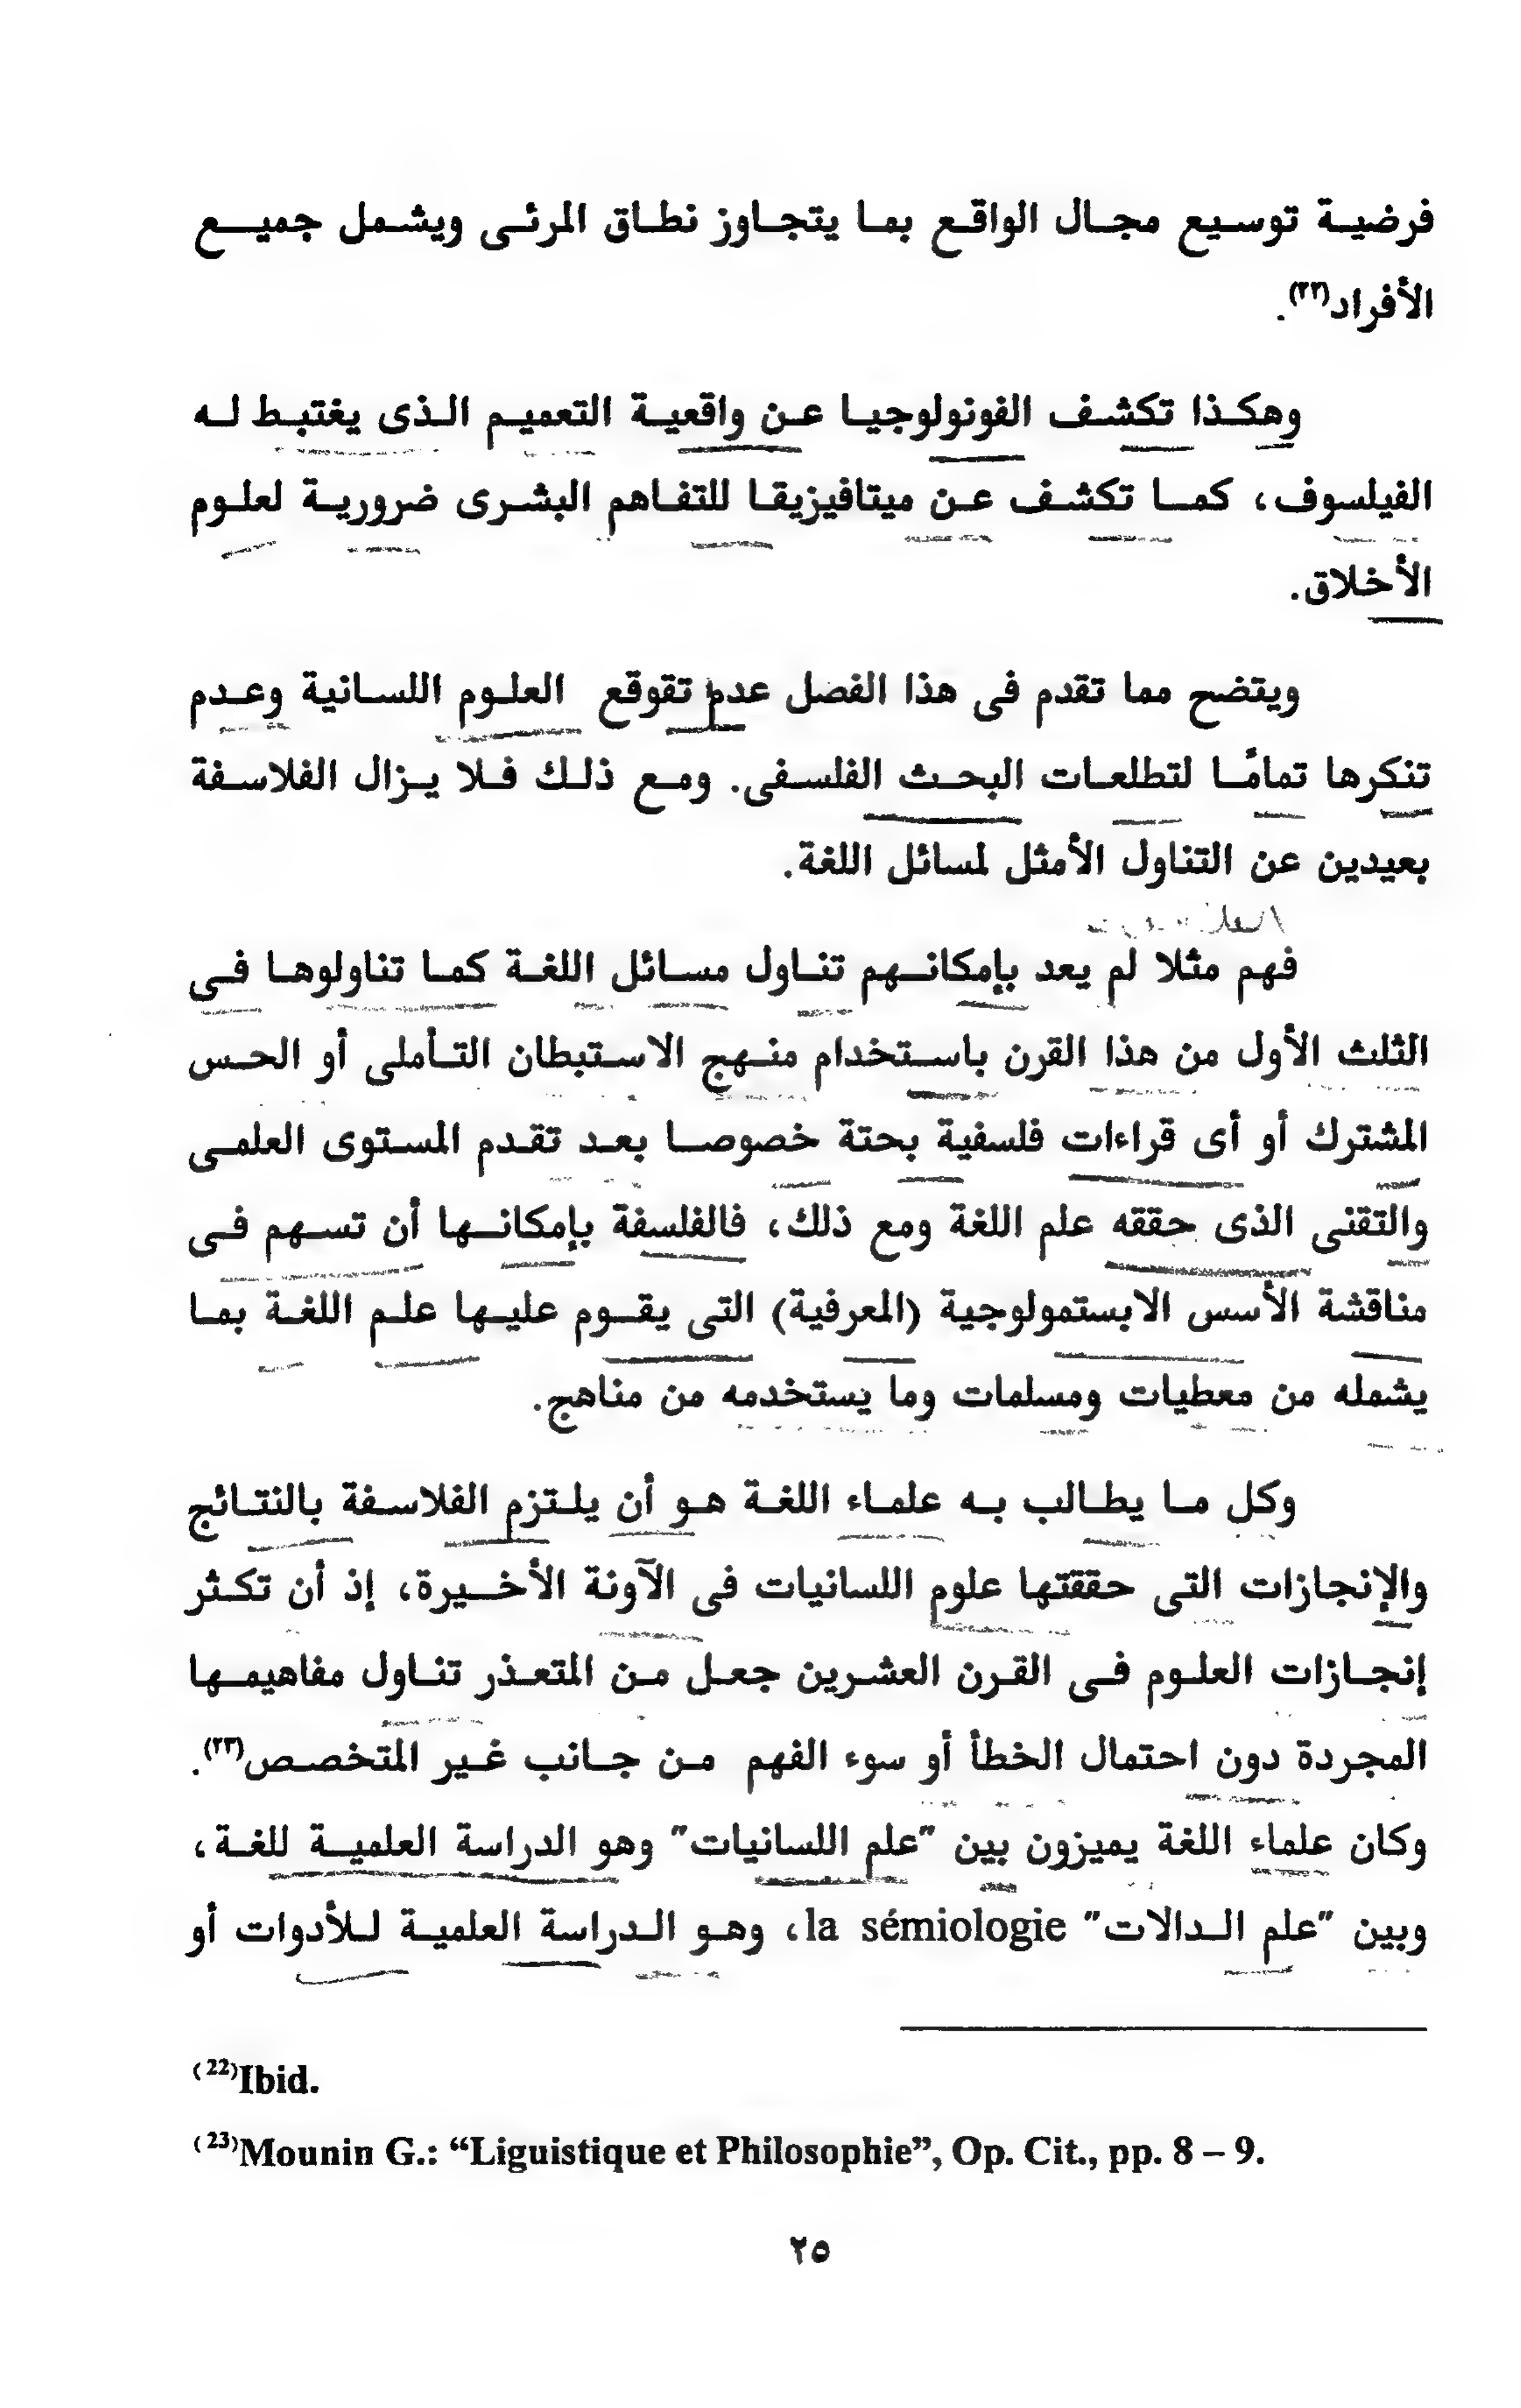 فرضية توسيع مجال الواقع بما يتجاوز نطاق المرئى ويشمل جميع
الأفراد(٢٢).
وهكذا تكشف الفونولوجيا عن واقعية التعميم الذى يغتبط له
الفيلسوف، كما تكشف عن ميتافيزيقا للتفاهم البشرى ضرورية لعلوم
الأخلاق.
ويتضح مما تقدم فى هذا الفصل عدم تقوقع العلوم اللسانية وعدم
تنكرها تمامًا لتطلعات البحث الفلسفى. ومع ذلك فلا يزال الفلاسفة
بعيدين عن التناول الأمثل لمسائل اللغة.
فهم مثلا لم يعد بإمكانهم تناول مسائل اللغة كما تناولوها فى
الثلث الأول من هذا القرن باستخدام منهج الاستبطان التأملى أو الحس
المشترك أو أى قراءات فلسفية بحتة خصوصا بعد تقدم المستوى العلمى
والتقنى الذى حققه علم اللغة ومع ذلك، فالفلسفة بإمكانها أن تسهم فى
مناقشة الأسس الابستمولوجية (المعرفية) التى يقوم عليها علم اللغة بما
يشمله من معطيات ومسلمات وما يستخدمه من مناهج.
وكل ما يطالب به علماء اللغة هو أن يلتزم الفلاسفة بالنتائج
والإنجازات التى حققتها علوم اللسانيات فى الآونة الأخيرة، إذ أن تكثر
إنجازات العلوم فى القرن العشرين جعل من المتعذر تناول مفاهيمها
المجردة دون احتمال الخطأ أو سوء الفهم من جانب غير المتخصص(٢٣).
وكان علماء اللغة يميزون بين "علم اللسانيات" وهو الدراسة العلمية للغة،
وبين "علم الدالات" la sémiologie، وهو الدراسة العلمية للأدوات أو
(22)Ibid.
(23)Mounin G.: “Liguistique et Philosophie”, Op. Cit., pp. 8 – 9.
٢٥